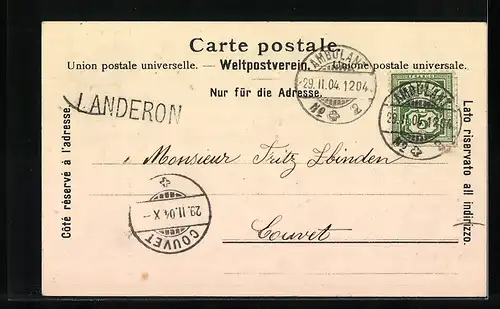 Carte postale.
Union postale universelle. — Weltpostverein. — Unione postale universale.
Nur für die Adresse.
AMBULANT
29.II.04 1204
No 2
FRANCO
5
AMBULANT
29.II.04 12
No
LANDERON
Côté réservé à l'adresse.
Lato riservato all indirizzo.
Monsieur Fritz Zbinden
Couvet
29.II.04 X-
COUVET